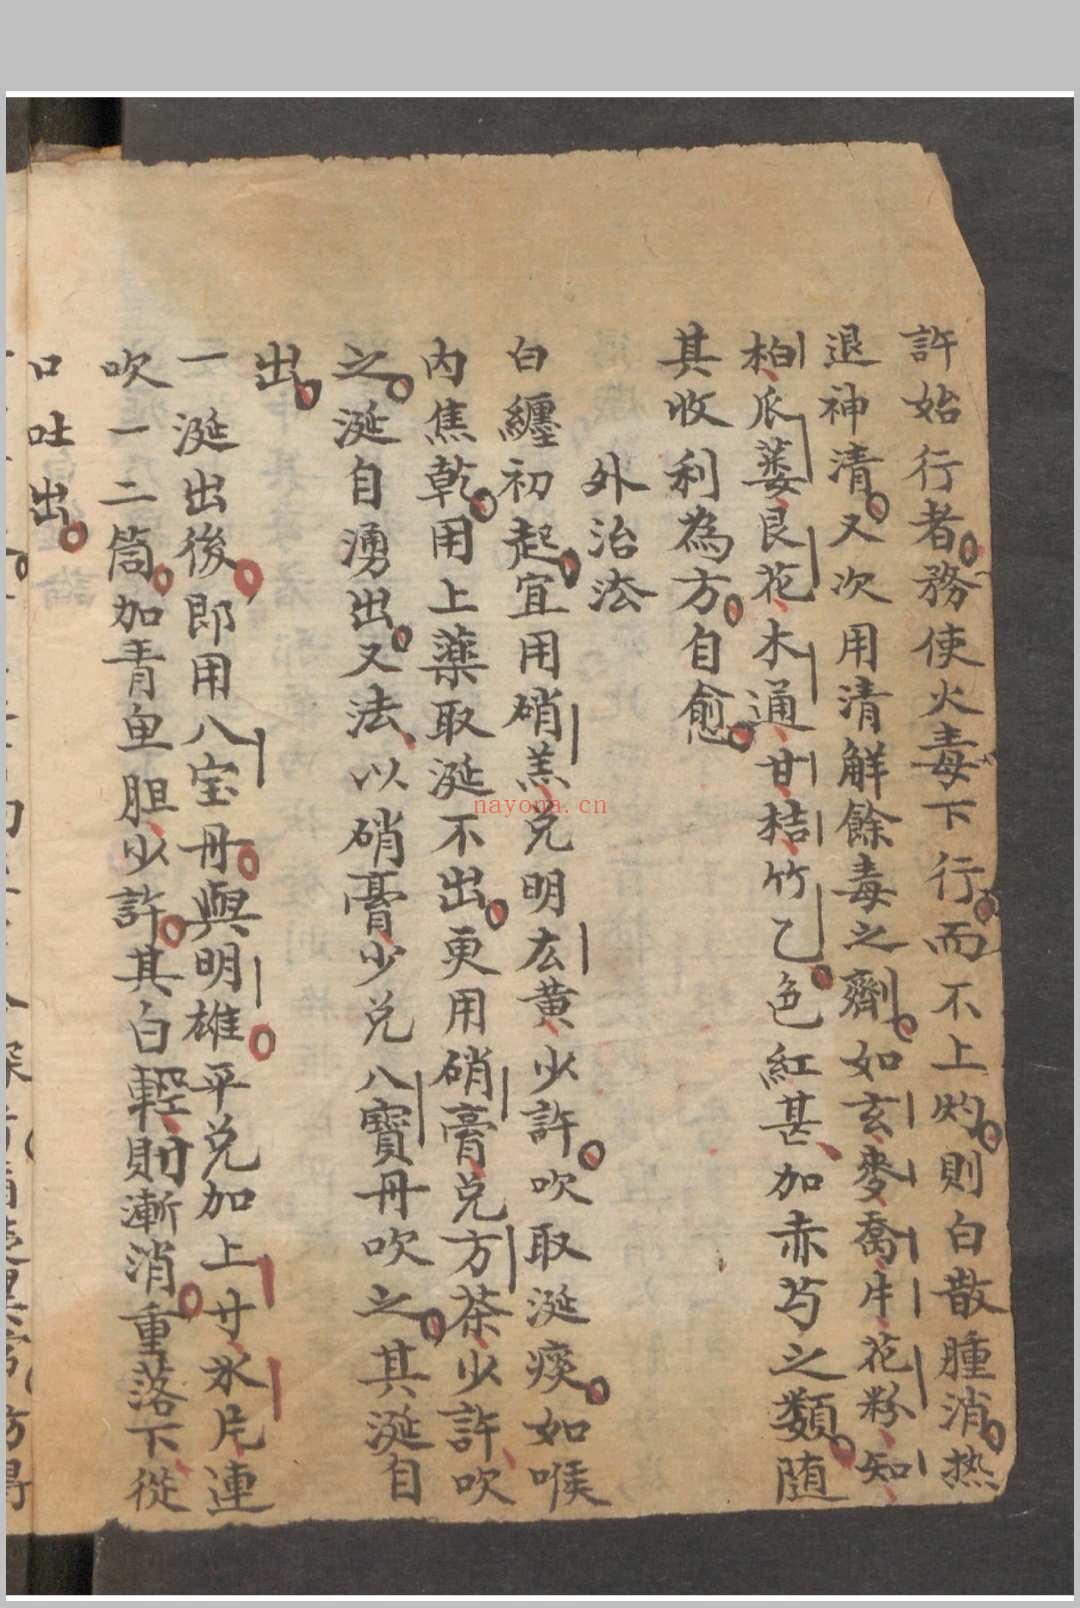 許始行者務使火毒下行而不上灼則白散腫消热
退神清又次用清解餘毒之劑如玄麥喬牛花粉知
柏瓜蒌艮花木通甘桔竹乙色紅甚加赤芍之類随
其收利為方自愈
外治法
白纏初起宜用硝羔兑明玄黄少許吹取涎痰如喉
内焦乾用上薬取涎不出更用硝膏兑方茶少許吹
之涎自湧出又法以硝膏少兑八寶丹吹之其涎自
出
一涎出後即用八宝丹與明雄平兑加上廿氷片連
吹一二筒加青鱼胆少許其白輕則漸消重落下從
口吐出
nayona.cn